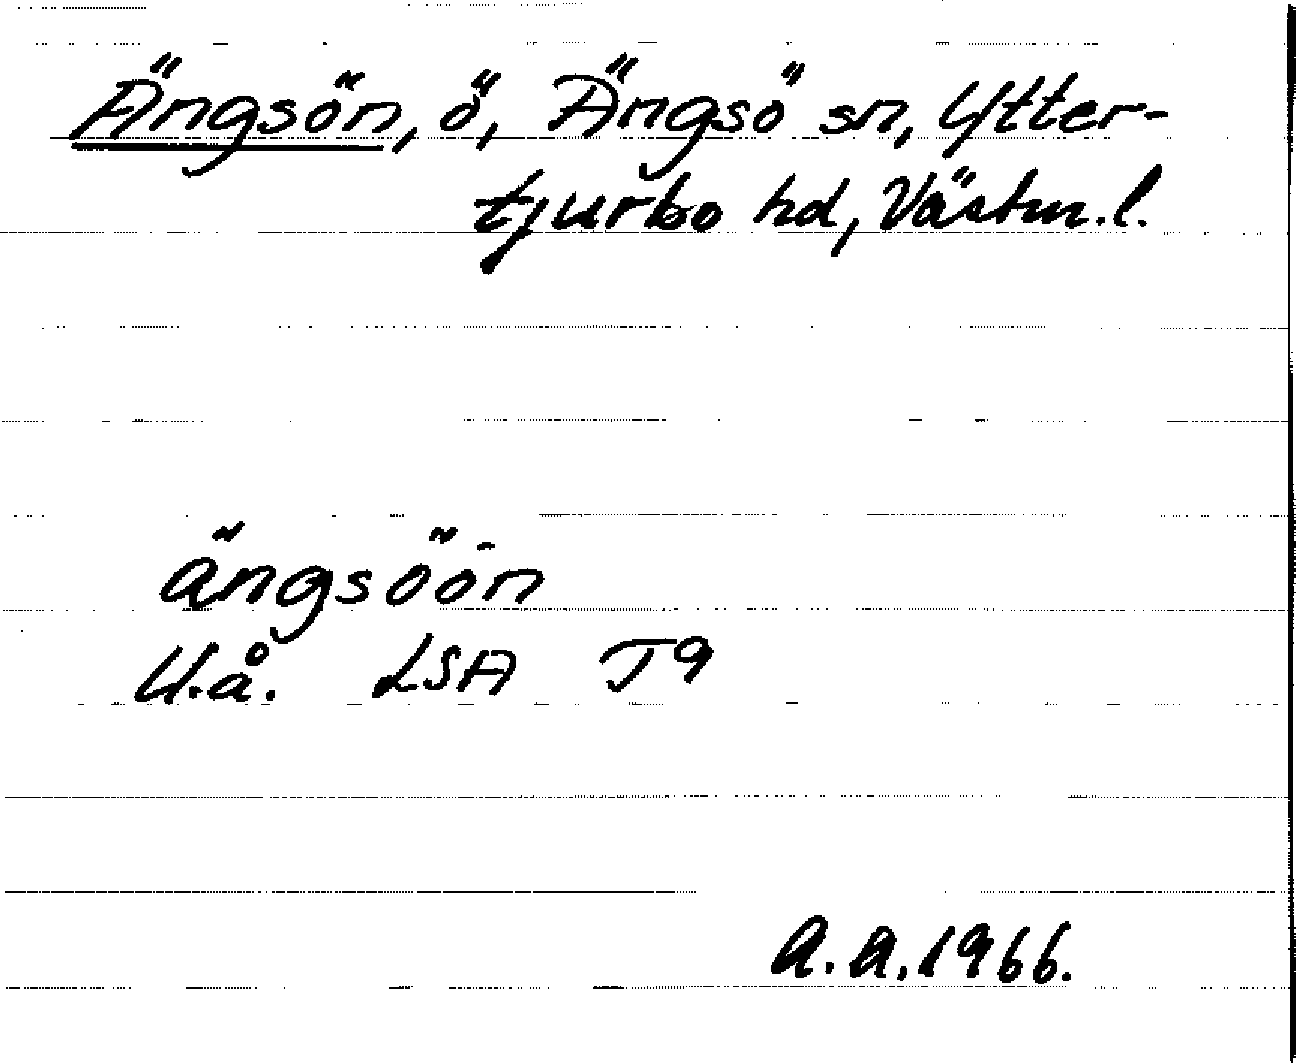 Ängsön, ö, Ängsö sn, Ytter-
tjurbo hd, Västm. l.
ängsöön
U.å. LSA T9
A.A. 1966.